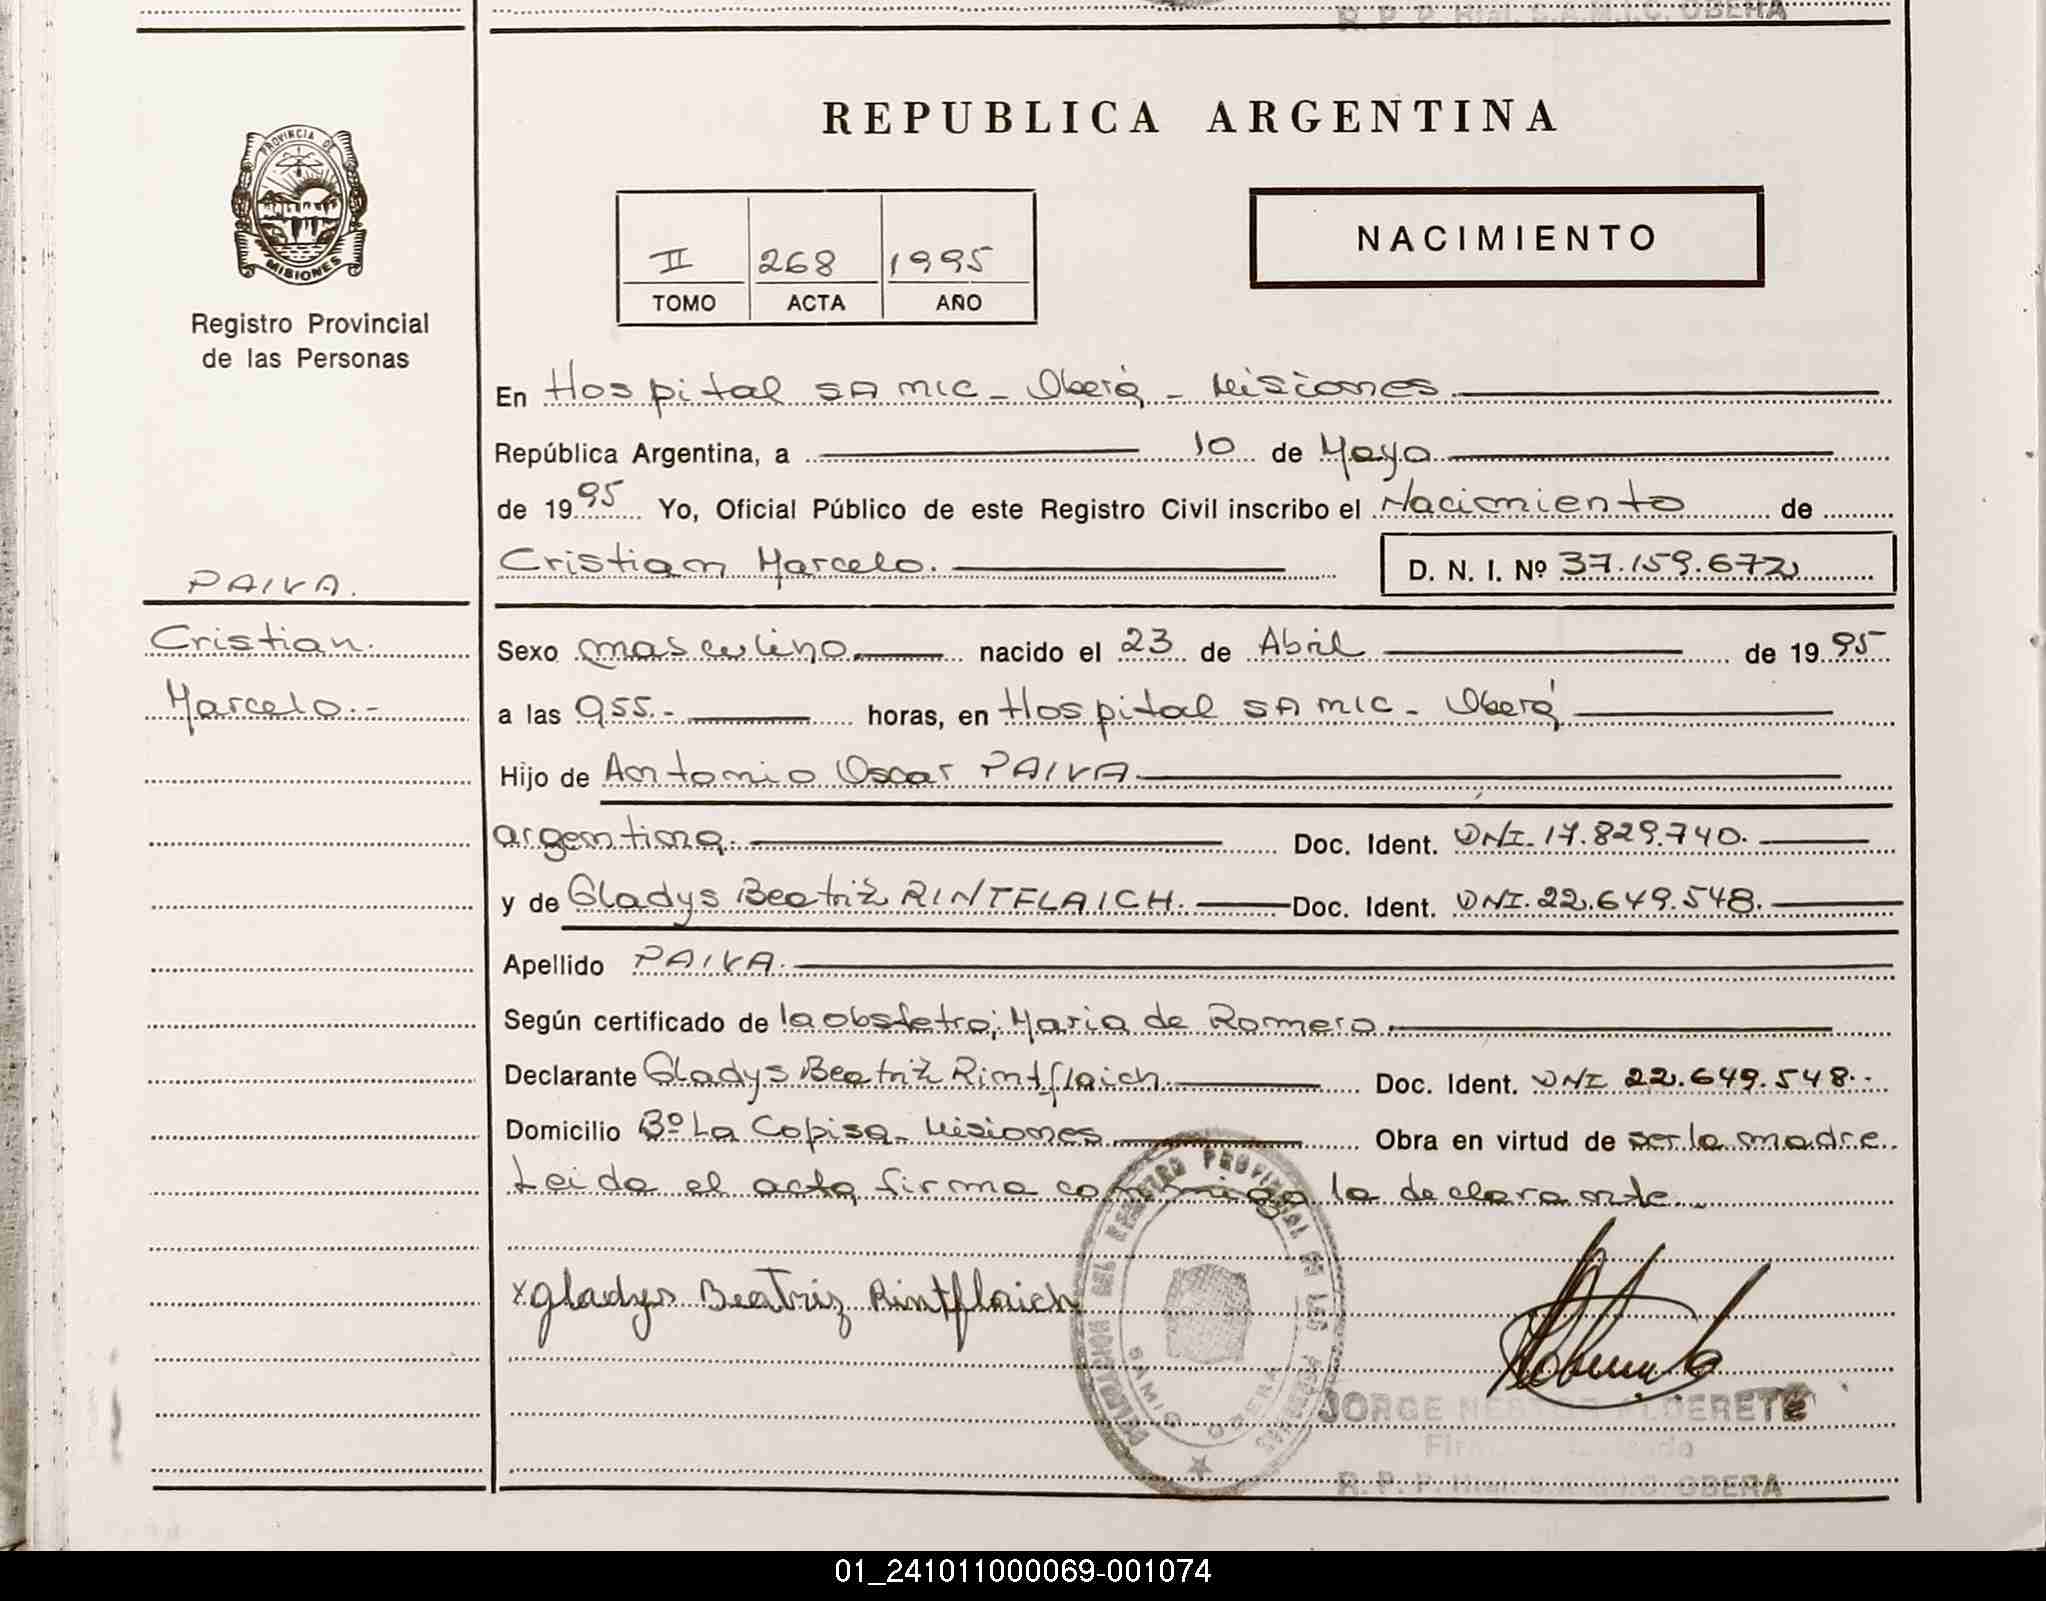 R. P. P. Htal. S.A.M.I.C. OBERA
REPUBLICA ARGENTINA
PROVINCIA DE
MISIONES
Registro Provincial
de las Personas
II 268 1995
TOMO ACTA AÑO
NACIMIENTO
En Hospital SAMIC - Oberá - Misiones
República Argentina, a 10 de Mayo
de 1995 Yo, Oficial Público de este Registro Civil inscribo el Nacimiento de
Cristian Marcelo. D. N. I. Nº 37.159.672
PAIVA.
Cristian.
Marcelo.-
Sexo masculino nacido el 23 de Abril de 1995
a las 955.- horas, en Hospital SAMIC - Oberá
Hijo de Antonio Oscar PAIVA
argentina. Doc. Ident. DNI. 17.829.740.
y de Gladys Beatriz RINTFLAICH. Doc. Ident. DNI. 22.649.548.
Apellido PAIVA.
Según certificado de la obstetra; Maria de Romero
Declarante Gladys Beatriz Rintflaich. Doc. Ident. DNI 22.649.548.-
Domicilio Bº La Copisa - Misiones Obra en virtud de ser la madre.
Leida el acta firma conmigo la declarante.
x gladys Beatriz Rintflaich
DELEGACION DEL REGISTRO PROVINCIAL DE LAS PERSONAS
SAMIC OBERA
JORGE NESTOR ALDERETE
R. P. P. Htal. S.A.M.I.C. OBERA
01_241011000069-001074